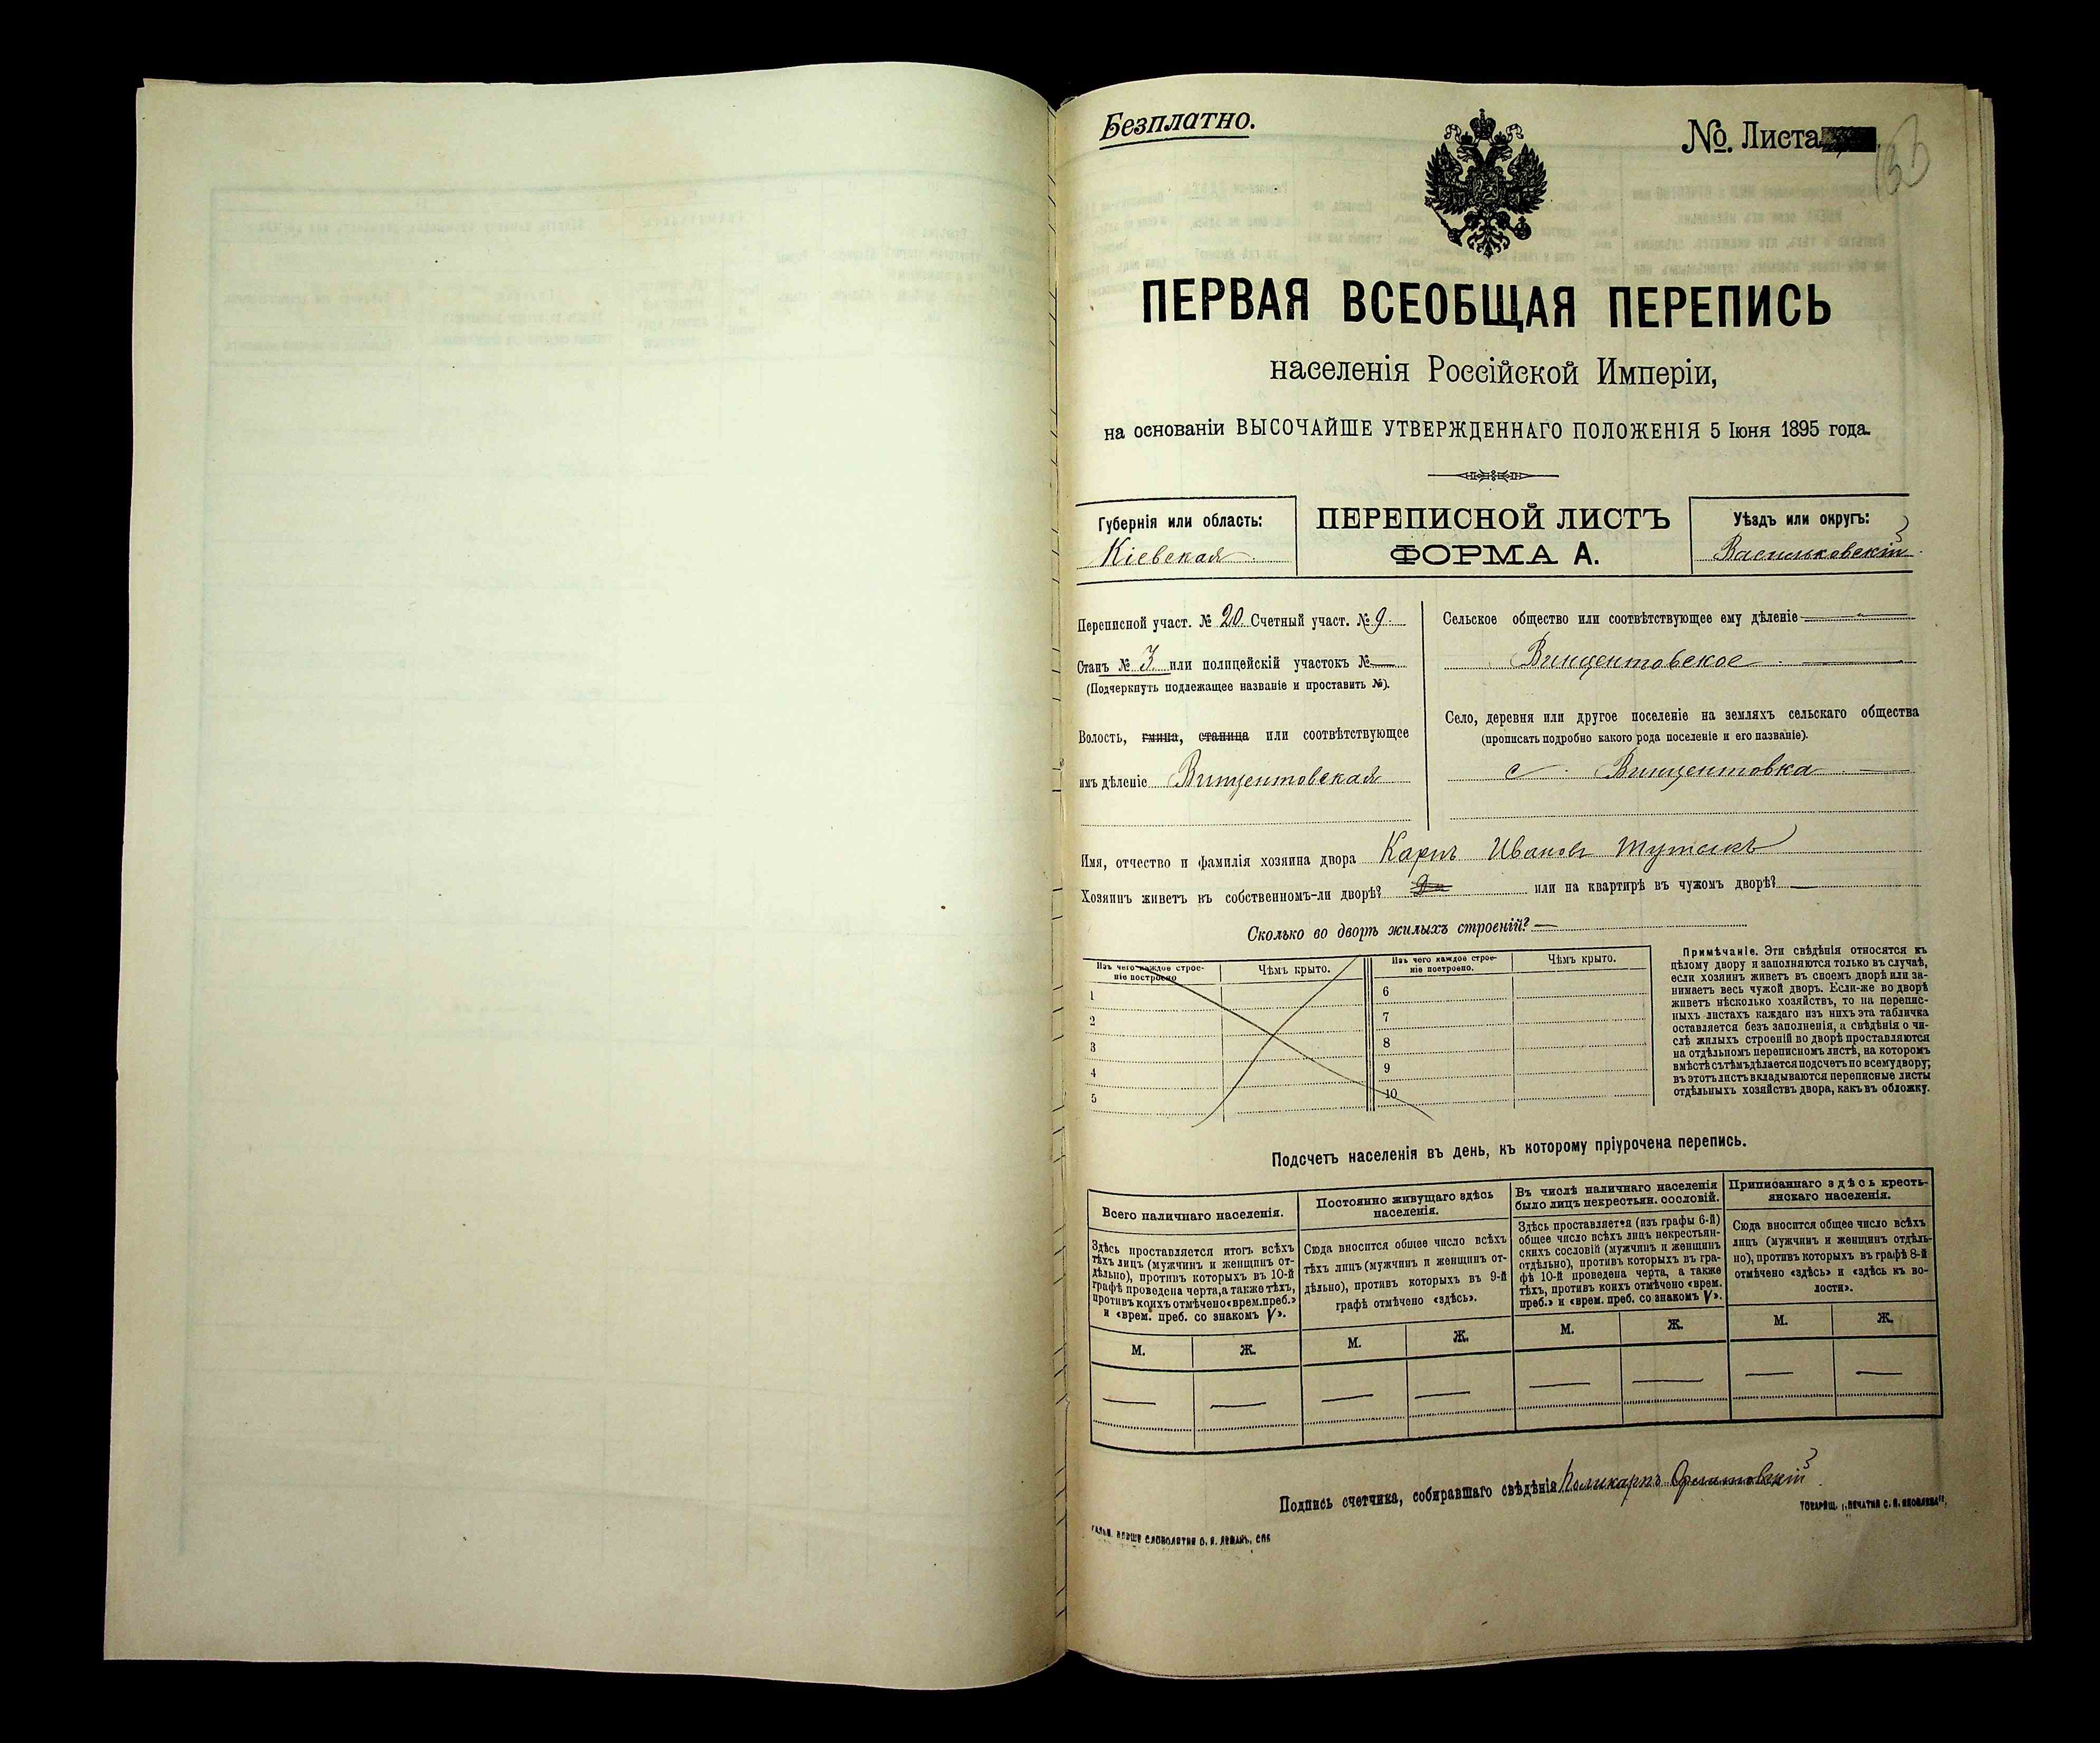 Безплатно.
№. Листа
ПЕРВАЯ ВСЕОБЩАЯ ПЕРЕПИСЬ
населенія Россійской Имперіи,
на основаніи ВЫСОЧАЙШЕ УТВЕРЖДЕННАГО ПОЛОЖЕНІЯ 5 Іюня 1895 года.
Губернія или область:
Кіевская
ПЕРЕПИСНОЙ ЛИСТЪ
ФОРМА А.
Уѣздъ или округъ:
Васильковскій
Переписной участ. № 20 Счетный участ. № 9
Станъ № 3 или полицейскій участокъ № —
(Подчеркнуть подлежащее названіе и проставить №).
Волость, гмина, станица или соотвѣтствующее
имъ дѣленіе Винцентовская
Сельское общество или соотвѣтствующее ему дѣленіе —
Винцентовское —
Село, деревня или другое поселеніе на земляхъ сельскаго общества
(прописать подробно какого рода поселеніе и его названіе).
с. Винцентовка —
Имя, отчество и фамилія хозяина двора Карпъ Ивановъ
Хозяинъ живетъ въ собственномъ-ли дворѣ? Да или на квартирѣ въ чужомъ дворѣ? —
Сколько во дворѣ жилыхъ строеній? —
Изъ чего каждое строе-
ніе построено
Чѣмъ крыто.
1
2
3
4
5
Изъ чего каждое строе-
ніе построено.
Чѣмъ крыто.
6
7
8
9
10
Примѣчаніе. Эти свѣдѣнія относятся къ
цѣлому двору и заполняются только въ случаѣ,
если хозяинъ живетъ въ своемъ дворѣ или за-
нимаетъ весь чужой дворъ. Если-же во дворѣ
живетъ нѣсколько хозяйствъ, то на перепис-
ныхъ листахъ каждаго изъ нихъ эта табличка
оставляется безъ заполненія, а свѣдѣнія о чи-
слѣ жилыхъ строеній во дворѣ проставляются
на отдѣльномъ переписномъ листѣ, на которомъ
вмѣстѣ съ тѣмъ дѣлается подсчетъ по всему двору;
въ этотъ листъ вкладываются переписные листы
отдѣльныхъ хозяйствъ двора, какъ въ обложку.
Подсчетъ населенія въ день, къ которому пріурочена перепись.
Всего наличнаго населенія.
Здѣсь проставляется итогъ всѣхъ
тѣхъ лицъ (мужчинъ и женщинъ от-
дѣльно), противъ которыхъ въ 10-й
графѣ проведена черта, а также тѣхъ,
противъ коихъ отмѣчено «врем. преб.»
и «врем. преб. со знакомъ V».
М. Ж.
— —
Постоянно живущаго здѣсь
населенія.
Сюда вносится общее число всѣхъ
тѣхъ лицъ (мужчинъ и женщинъ от-
дѣльно), противъ которыхъ въ 9-й
графѣ отмѣчено «здѣсь».
М. Ж.
— —
Въ числѣ наличнаго населенія
было лицъ некрестьян. сословій.
Здѣсь проставляется (изъ графы 6-й)
общее число всѣхъ лицъ некрестьян-
скихъ сословій (мужчинъ и женщинъ
отдѣльно), противъ которыхъ въ гра-
фѣ 10-й проведена черта, а также
тѣхъ, противъ коихъ отмѣчено «врем.
преб.» и «врем. преб. со знакомъ V».
М. Ж.
— —
Приписаннаго здѣсь кресть-
янскаго населенія.
Сюда вносится общее число всѣхъ
лицъ (мужчинъ и женщинъ отдѣль-
но), противъ которыхъ въ графѣ 8-й
отмѣчено «здѣсь» и «здѣсь къ во-
лости».
М. Ж.
— —
Подпись счетчика, собиравшаго свѣдѣнія Поликарпъ
ТОВАРИЩ. „ПЕЧАТНЯ С. П. ЯКОВЛЕВА“,
СЛОВОЛИТНЯ О. И. ЛЕМАНЪ, СПБ